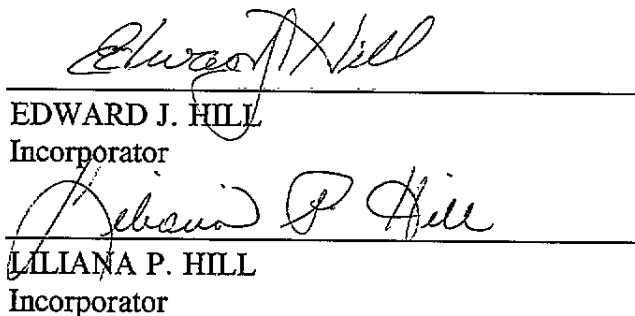 Edward J Hill
EDWARD J. HILL
Incorporator
Liliana P Hill
LILIANA P. HILL
Incorporator